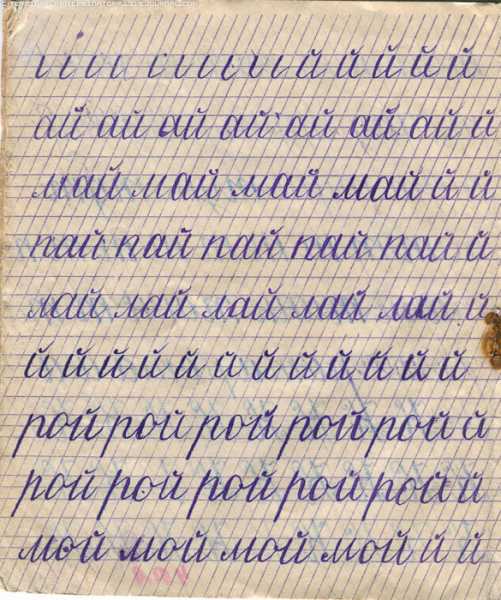 й й й й й
ай ай ай ай ай ай ай й
май май май май й й
пай пай пай пай пай й
лай лай лай лай лай й
й й й й й й й й й й й й
рой рой рой рой рой й
рой рой рой рой рой й
мой мой мой мой й й